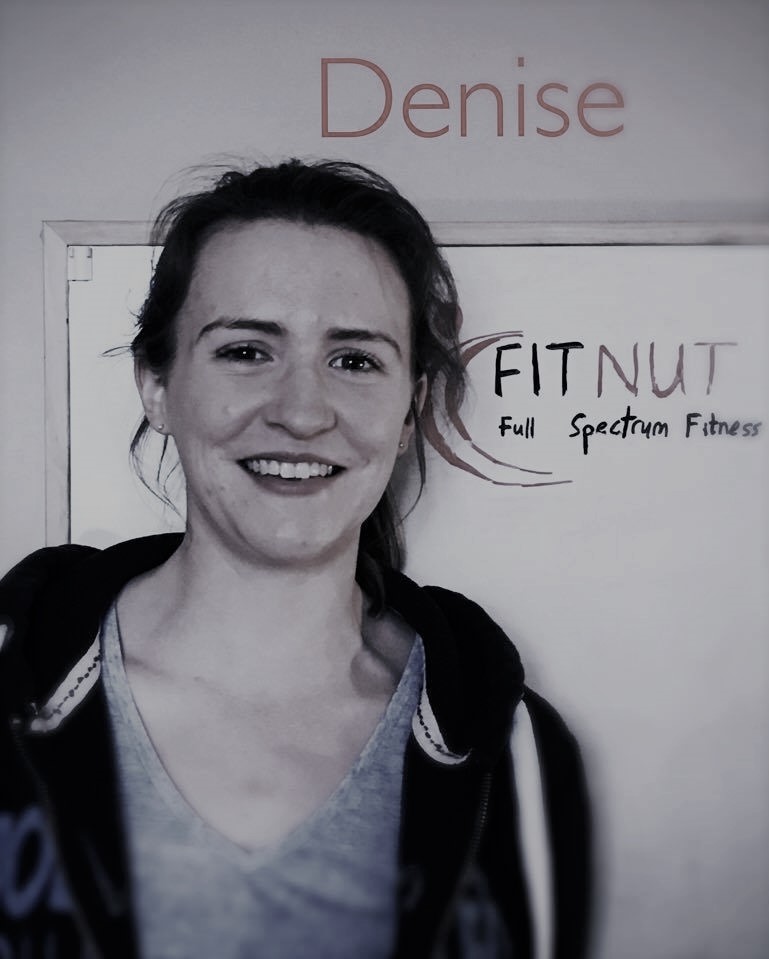 Denise
FITNUT
Full Spectrum Fitness